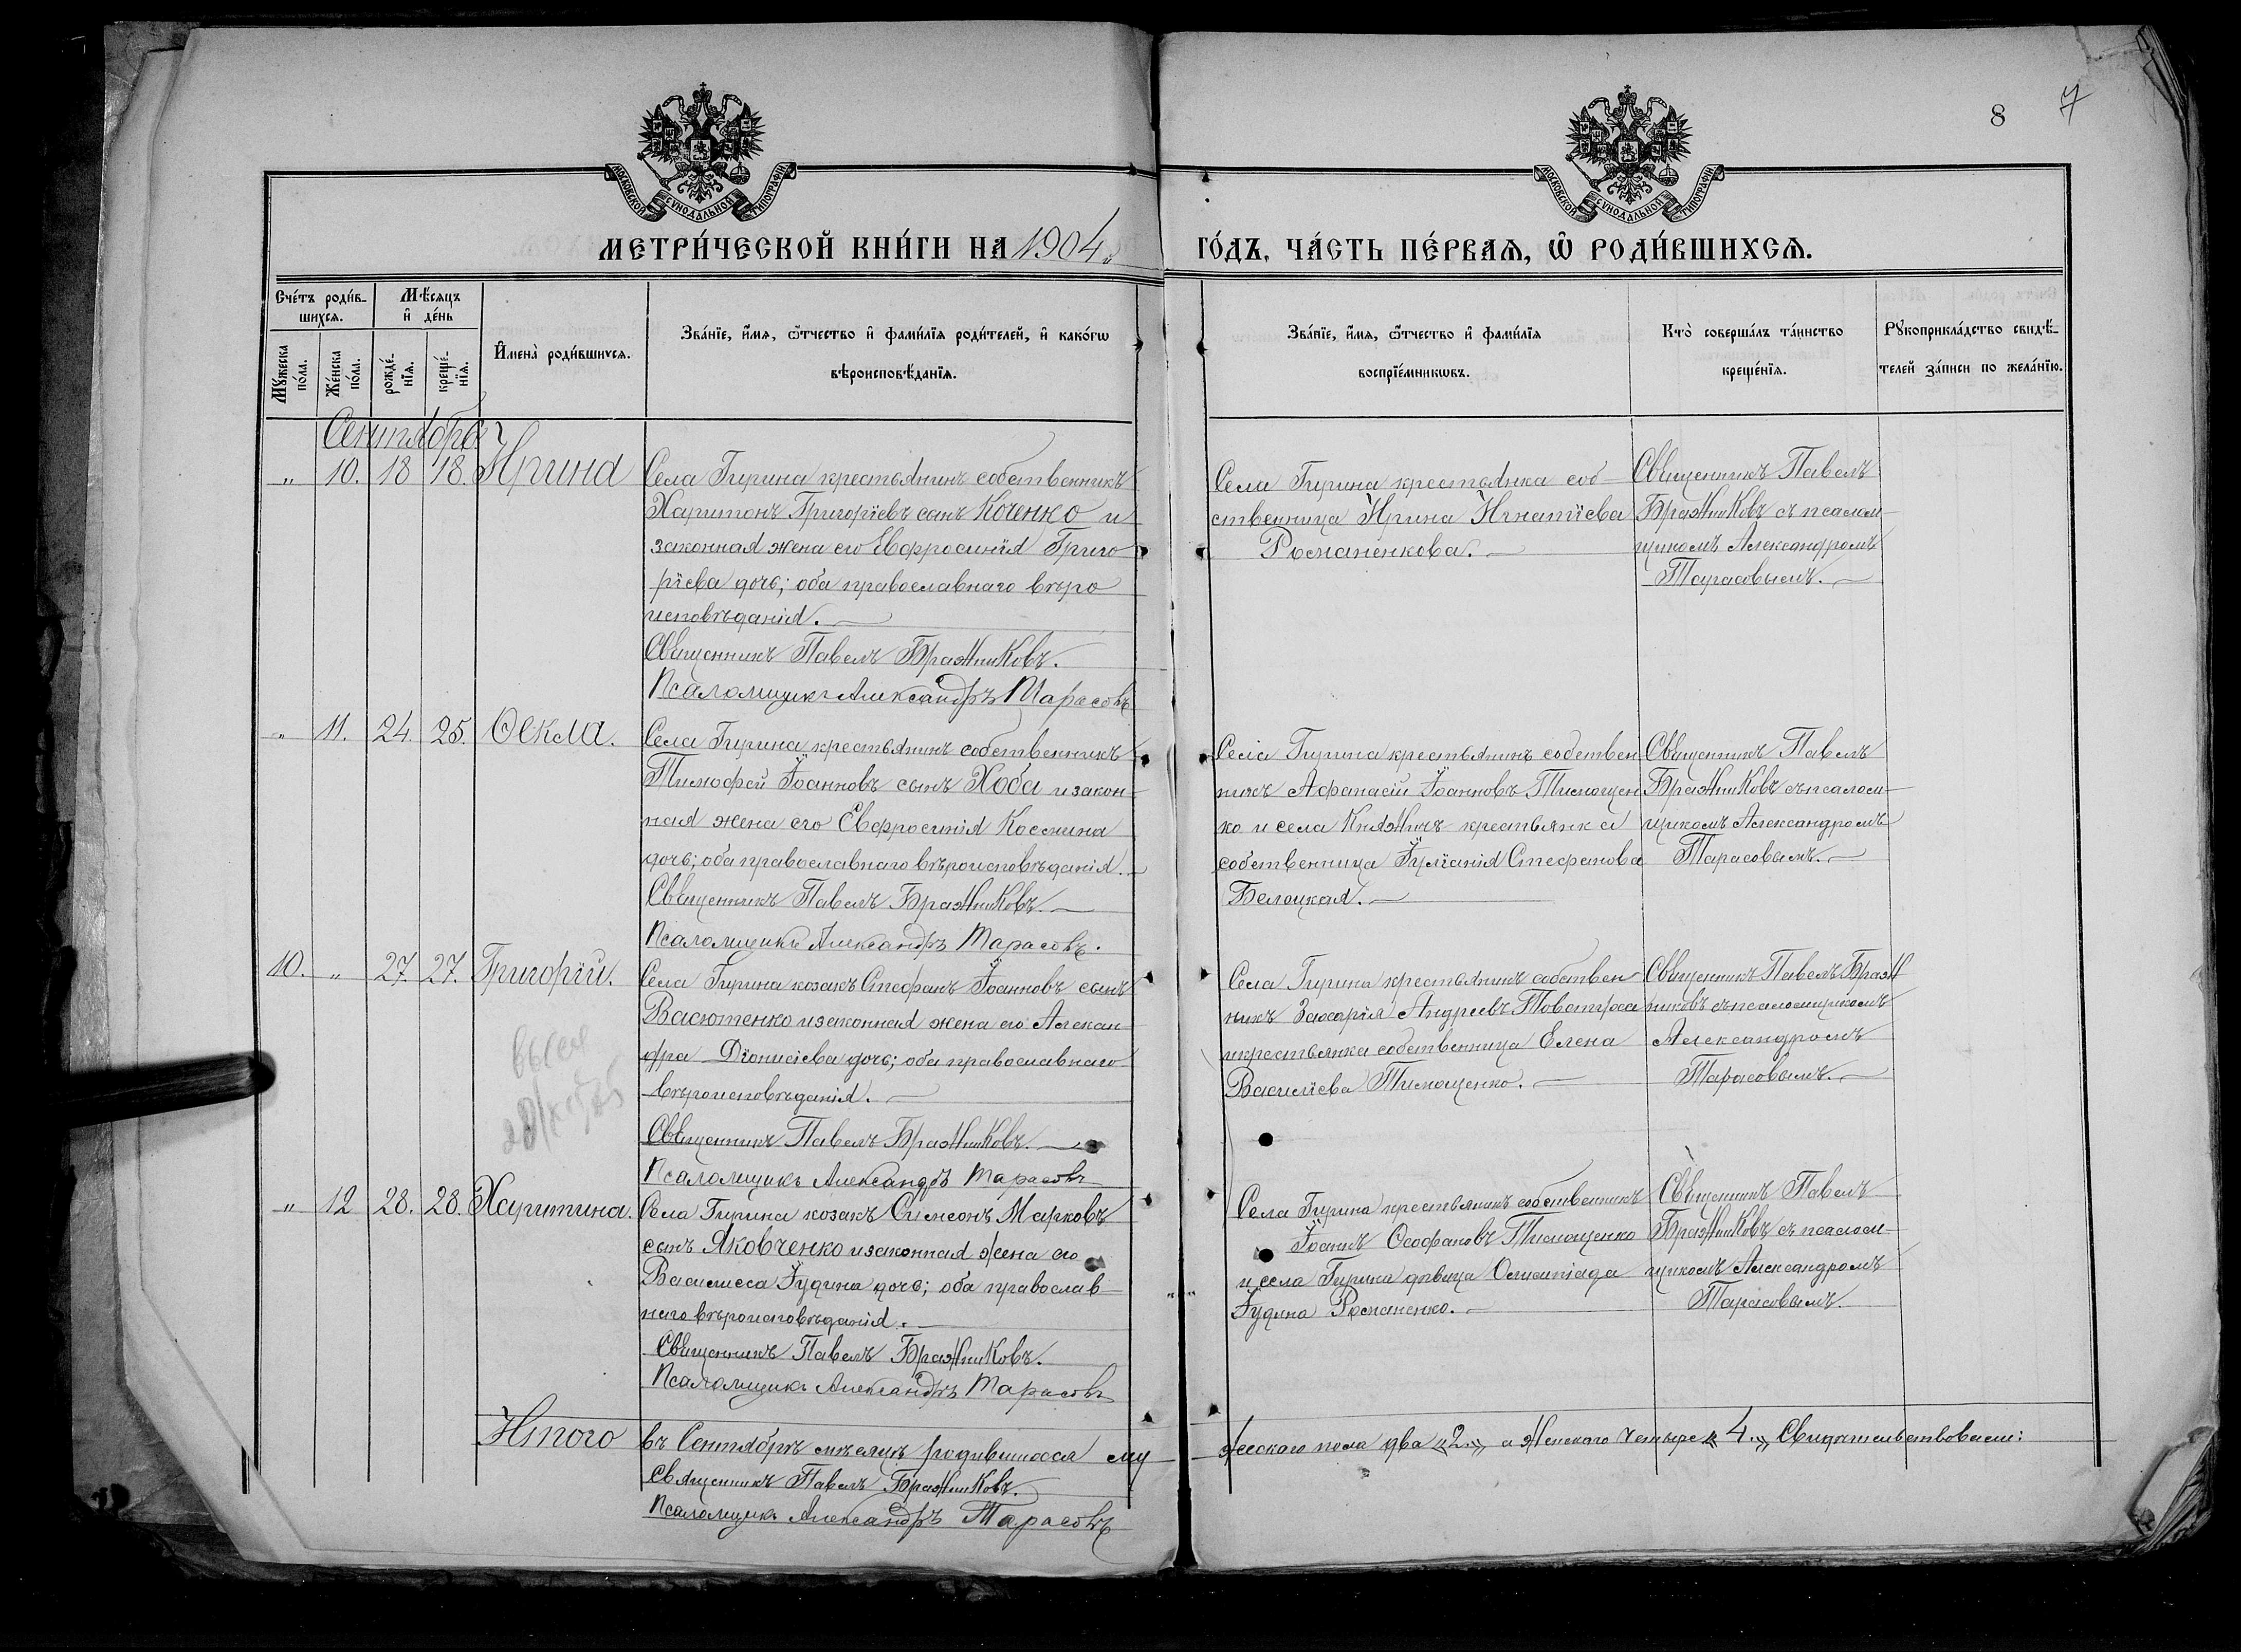 8 7
МОСКОВСКОЙ СѴНОДАЛЬНОЙ ТИПОГРАФІИ
МОСКОВСКОЙ СѴНОДАЛЬНОЙ ТИПОГРАФІИ
МЕТРИ́ЧЕСКОЙ КНИ́ГИ НА 1904
ГО́ДЪ, ЧА́СТЬ ПЕ́РВАѦ, Ѡ РОДИ́ВШИХСѦ.
Сче́тъ роди́в-
шихсѧ.
Мѣ́сѧцъ
и҆ де́нь
Мꙋ́жеска по́ла.
Же́нска по́ла.
рожде́-
нїѧ.
креще́-
нїѧ.
И҆мена̀ роди́вшихсѧ.
Зва́нїе, и҆́мѧ, ѻ҆́тчество и҆ фами́лїѧ роди́телей, и҆ како́гѡ
вѣроисповѣ́данїѧ.
Зва́нїе, и҆́мѧ, ѻ҆́тчество и҆ фами́лїѧ
воспрїе́мникѡвъ.
Кто̀ соверша́лъ та́инство
креще́нїѧ.
Рꙋкоприкла́дство свидѣ́-
телей за́писи по жела́нїю.
Сентябрь
" 10. 18 18. Ирина
Села Гирина крестьянинъ собственникъ
Харитонъ Григоріевъ сынъ Коченко и
законная жена его Евфросинія Григо
ріева дочь; оба православнаго вѣро
исповѣданія.
Священникъ Павелъ Бражниковъ.
Псаломщикъ Александръ Тарасовъ
Села Гирина крестьянка соб-
ственница Ирина Игнатіева
Романенкова.
Священникъ Павелъ
Бражниковъ съ псалом-
щикомъ Александромъ
Тарасовымъ.
" 11. 24. 25. Ѳекла.
Села Гирина крестьянинъ собственникъ
Тимофей Іоанновъ сынъ Хоба и закон-
ная жена его Евфросинія Космина
дочь; оба православнаго вѣроисповѣданія.
Священникъ Павелъ Бражниковъ.
Псаломщикъ Александръ Тарасовъ.
Села Гирина крестьянинъ собствен
никъ Афанасій Іоанновъ Тимошен
ко и села Княжичъ крестьянка
собственница Іуліанія Стефанова
Белоцкая.
Священникъ Павелъ
Бражниковъ съ псалом-
щикомъ Александромъ
Тарасовымъ.
10. " 27. 27. Григорій.
Села Гирина козакъ Стефанъ Іоанновъ сынъ
Васютенко и законная жена его Алексан
дра Діонисіева дочь; оба православнаго
вѣроисповѣданія.
Священникъ Павелъ Бражниковъ.
Псаломщикъ Александръ Тарасовъ
Села Гирина крестьянинъ собствен
никъ Захарія Андреевъ Товстуха
и крестьянка собственница Елена
Василіева Тимошенко.
Священникъ Павелъ Браж
никовъ съ псаломщикомъ
Александромъ
Тарасовымъ.
" 12 28. 28. Харитина.
Села Гирина козакъ Симеонъ Марковъ
сынъ Яковченко и законная жена его
Василисса Іудина дочь; оба православ
наго вѣроисповѣданія.
Священникъ Павелъ Бражниковъ.
Псаломщикъ Александръ Тарасовъ
Села Гирина крестьянинъ собственникъ
Іоаннъ Ѳеофановъ Тимошенко
и села Гирина дѣвица Олимпіада
Іудина Романенко.
Священникъ Павелъ
Бражниковъ съ псалом-
щикомъ Александромъ
Тарасовымъ.
Итого въ Сентябрѣ мѣсяцѣ родившихся му
жескаго пола два «2.» а женскаго четыре «4.» Свидѣтельствовали:
Священникъ Павелъ Бражниковъ.
Псаломщикъ Александръ Тарасовъ